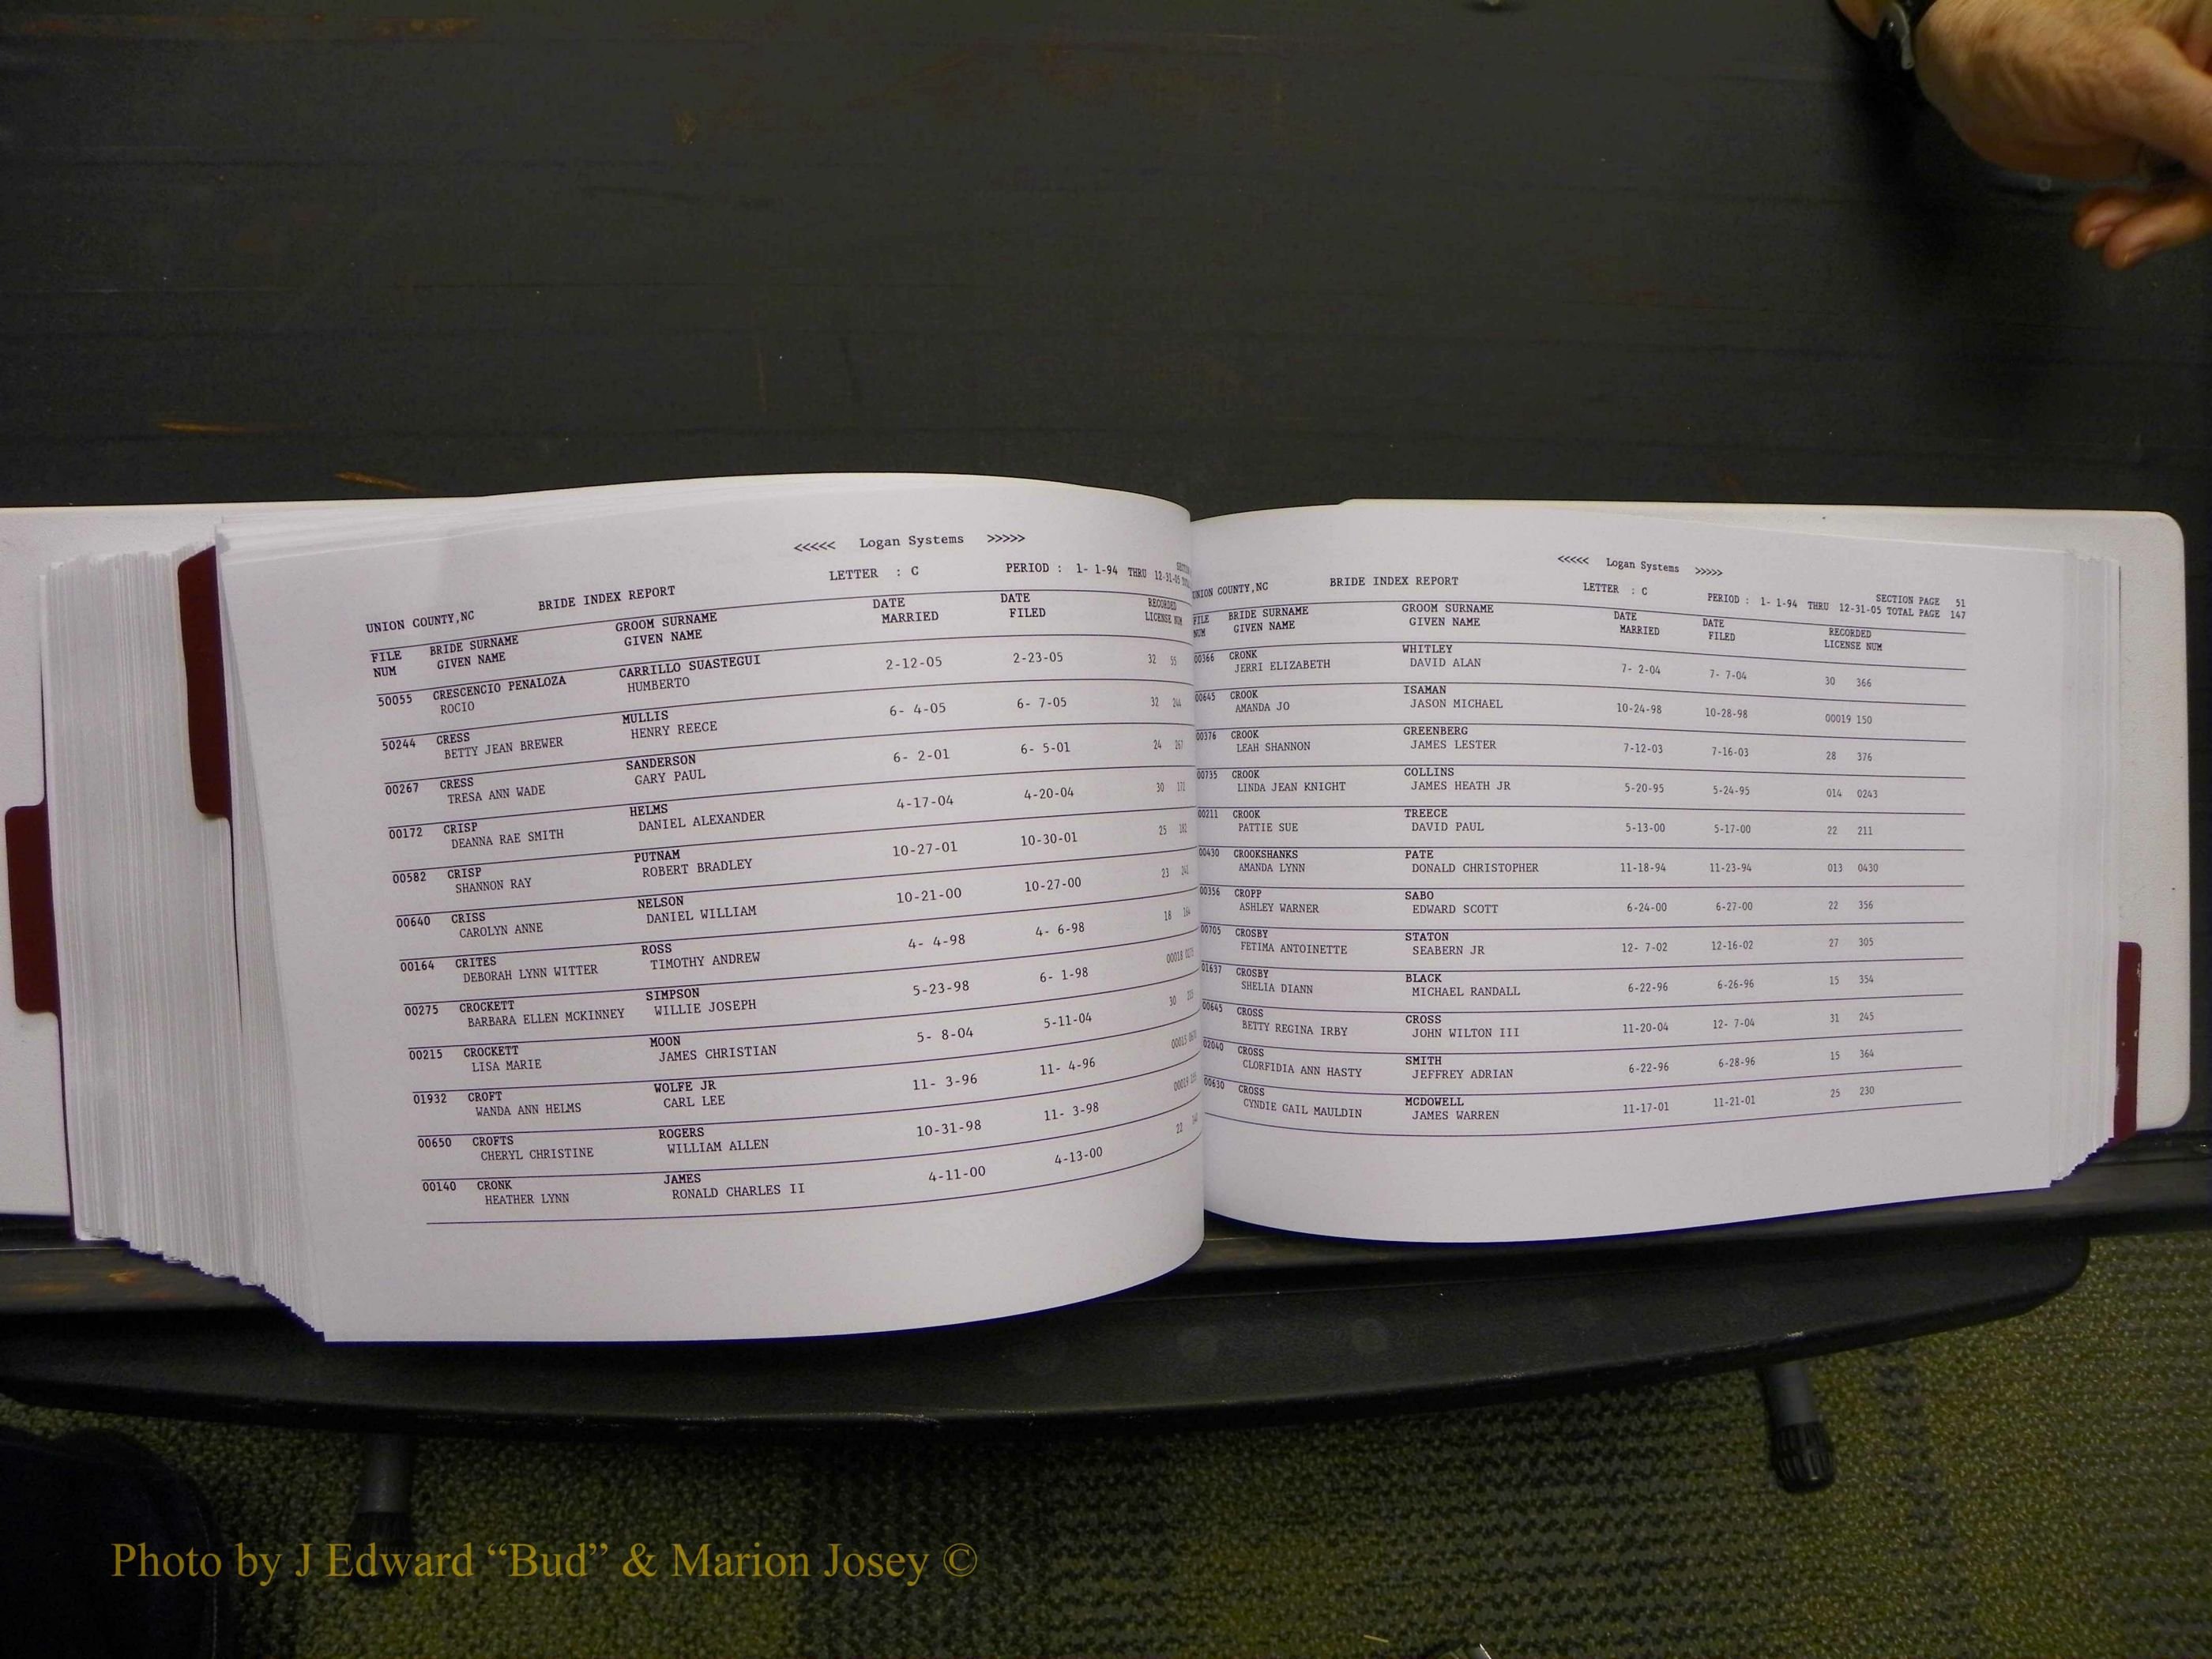 <<<<< Logan Systems >>>>>
UNION COUNTY,NC BRIDE INDEX REPORT LETTER : C PERIOD : 1- 1-94 THRU 12-31-05
FILE BRIDE SURNAME GROOM SURNAME DATE DATE RECORDED
NUM GIVEN NAME GIVEN NAME MARRIED FILED LICENSE NUM
50055 CRESCENCIO PENALOZA CARRILLO SUASTEGUI 2-12-05 2-23-05 32 55
ROCIO HUMBERTO
50244 CRESS MULLIS 6- 4-05 6- 7-05 32 244
BETTY JEAN BREWER HENRY REECE
00267 CRESS SANDERSON 6- 2-01 6- 5-01 24 267
TRESA ANN WADE GARY PAUL
00172 CRISP HELMS 4-17-04 4-20-04 30 172
DEANNA RAE SMITH DANIEL ALEXANDER
00582 CRISP PUTNAM 10-27-01 10-30-01 25 182
SHANNON RAY ROBERT BRADLEY
00640 CRISS NELSON 10-21-00 10-27-00 23
CAROLYN ANNE DANIEL WILLIAM
00164 CRITES ROSS 4- 4-98 4- 6-98 18 164
DEBORAH LYNN WITTER TIMOTHY ANDREW
00275 CROCKETT SIMPSON 5-23-98 6- 1-98 00018
BARBARA ELLEN MCKINNEY WILLIE JOSEPH
00215 CROCKETT MOON 5- 8-04 5-11-04 30 215
LISA MARIE JAMES CHRISTIAN
01932 CROFT WOLFE JR 11- 3-96 11- 4-96 00015
WANDA ANN HELMS CARL LEE
00650 CROFTS ROGERS 10-31-98 11- 3-98 00019
CHERYL CHRISTINE WILLIAM ALLEN
00140 CRONK JAMES 4-11-00 4-13-00 22
HEATHER LYNN RONALD CHARLES II
<<<<< Logan Systems >>>>>
UNION COUNTY,NC BRIDE INDEX REPORT LETTER : C SECTION PAGE 51
PERIOD : 1- 1-94 THRU 12-31-05 TOTAL PAGE 147
FILE BRIDE SURNAME GROOM SURNAME DATE DATE RECORDED
NUM GIVEN NAME GIVEN NAME MARRIED FILED LICENSE NUM
00366 CRONK WHITLEY 7- 2-04 7- 7-04 30 366
JERRI ELIZABETH DAVID ALAN
00645 CROOK ISAMAN 10-24-98 10-28-98 00019 150
AMANDA JO JASON MICHAEL
00376 CROOK GREENBERG 7-12-03 7-16-03 28 376
LEAH SHANNON JAMES LESTER
00735 CROOK COLLINS 5-20-95 5-24-95 014 0243
LINDA JEAN KNIGHT JAMES HEATH JR
00211 CROOK TREECE 5-13-00 5-17-00 22 211
PATTIE SUE DAVID PAUL
00430 CROOKSHANKS PATE 11-18-94 11-23-94 013 0430
AMANDA LYNN DONALD CHRISTOPHER
00356 CROPP SABO 6-24-00 6-27-00 22 356
ASHLEY WARNER EDWARD SCOTT
00705 CROSBY STATON 12- 7-02 12-16-02 27 305
FETIMA ANTOINETTE SEABERN JR
01637 CROSBY BLACK 6-22-96 6-26-96 15 354
SHELIA DIANN MICHAEL RANDALL
00645 CROSS CROSS 11-20-04 12- 7-04 31 245
BETTY REGINA IRBY JOHN WILTON III
02040 CROSS SMITH 6-22-96 6-28-96 15 364
CLORFIDIA ANN HASTY JEFFREY ADRIAN
00630 CROSS MCDOWELL 11-17-01 11-21-01 25 230
CYNDIE GAIL MAULDIN JAMES WARREN
Photo by J Edward “Bud” & Marion Josey ©